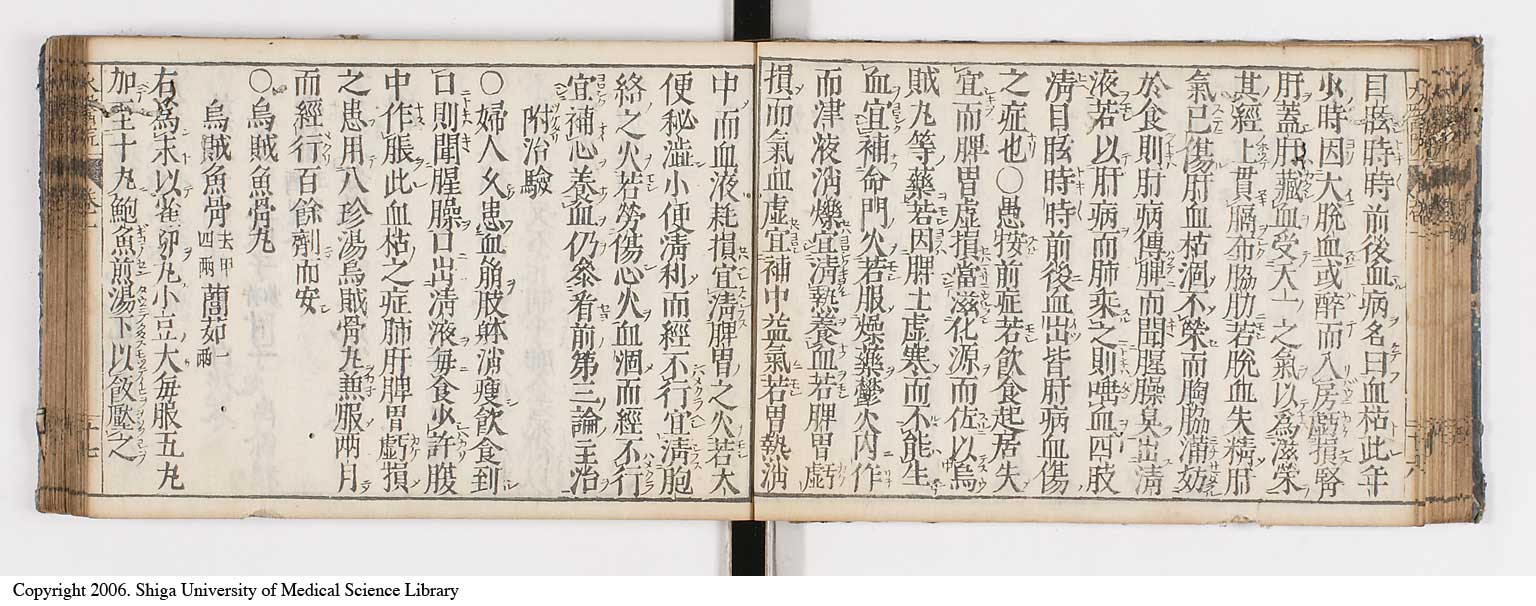 目眩時時前後血病名曰血枯此年
少時因大脫血或醉而入房虧損腎
肝蓋肝藏血受天一之氣以爲滋榮
其經上貫膈布脇肋若脫血失精肝
氣已傷肝血枯涸不榮而胸脇滿妨
於食則肝病傳脾而聞腥臊臭出淸
液若以肝病而肺乘之則唾血四肢
淸目眩時時前後血出皆肝病血傷
之症也〇愚按前症若飮食起居失
宜而脾胃虛損當滋化源而佐以烏
賊丸等藥若因脾土虛寒而不能生
血宜補命門火若服燥藥鬱火內作
而津液消爍宜淸熱養血若脾胃虧虛
損而氣血虛宜補中益氣若胃熱消
中而血液耗損宜淸脾胃之火若大
便秘澁小便淸利而經不行宜淸胞
絡之火若勞傷心火血涸而經不行
宜補心養血仍參看前第三論主治
附治驗
〇婦人久患血崩肢躰消瘦飮食到
口則聞腥臊口出淸液每食少許腹
中作脹此血枯之症肺肝脾胃虧損
之患用八珍湯烏賊骨丸兼服兩月
而經行百餘劑而安
〇烏賊魚骨丸
烏賊魚骨去甲四兩 䕡茹一兩
右爲末以雀卵丸小豆大每服五丸
加至十丸鮑魚煎湯下以飯壓之
Copyright 2006. Shiga University of Medical Science Library